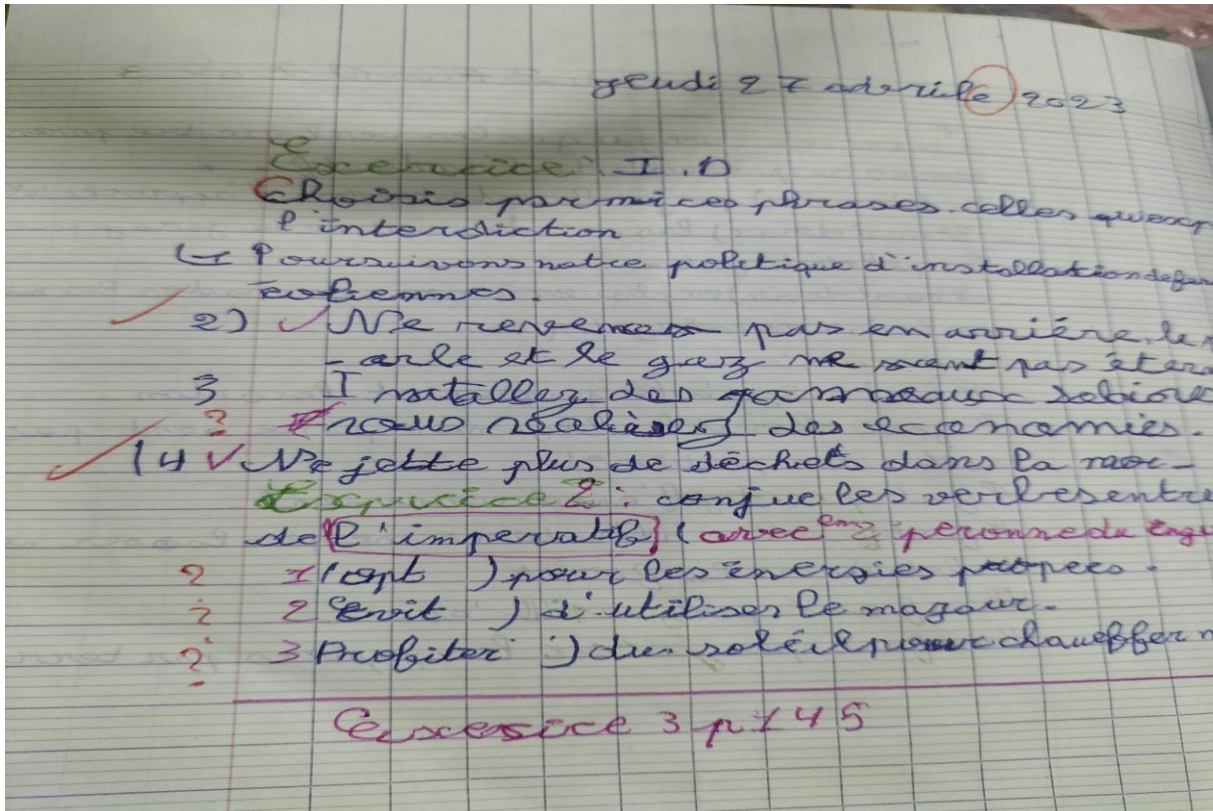 jeudi 27 avrile 2023
Exercice : I.D
Choisis parmi ces phrases celles qui exp
l'interdiction
1- Poursuivons notre politique d'installation de fer
éoliennes.
2) Ne revenez pas en arrière, le
et le gaz ne sont pas éter
3 Installez des panneaux solaire
nous réaliserez des economies.
4 Ne jette plus de déchets dans la mer
Exercice 2: conjue les verbes entre
de l'imperatif (avec 2 peronne du
1 (opt ) pour les énergies propres.
2 Evit ) d'utiliser le mazout.
3 Profiter ) du soleil pour chauffer
Excesice 3 p 145